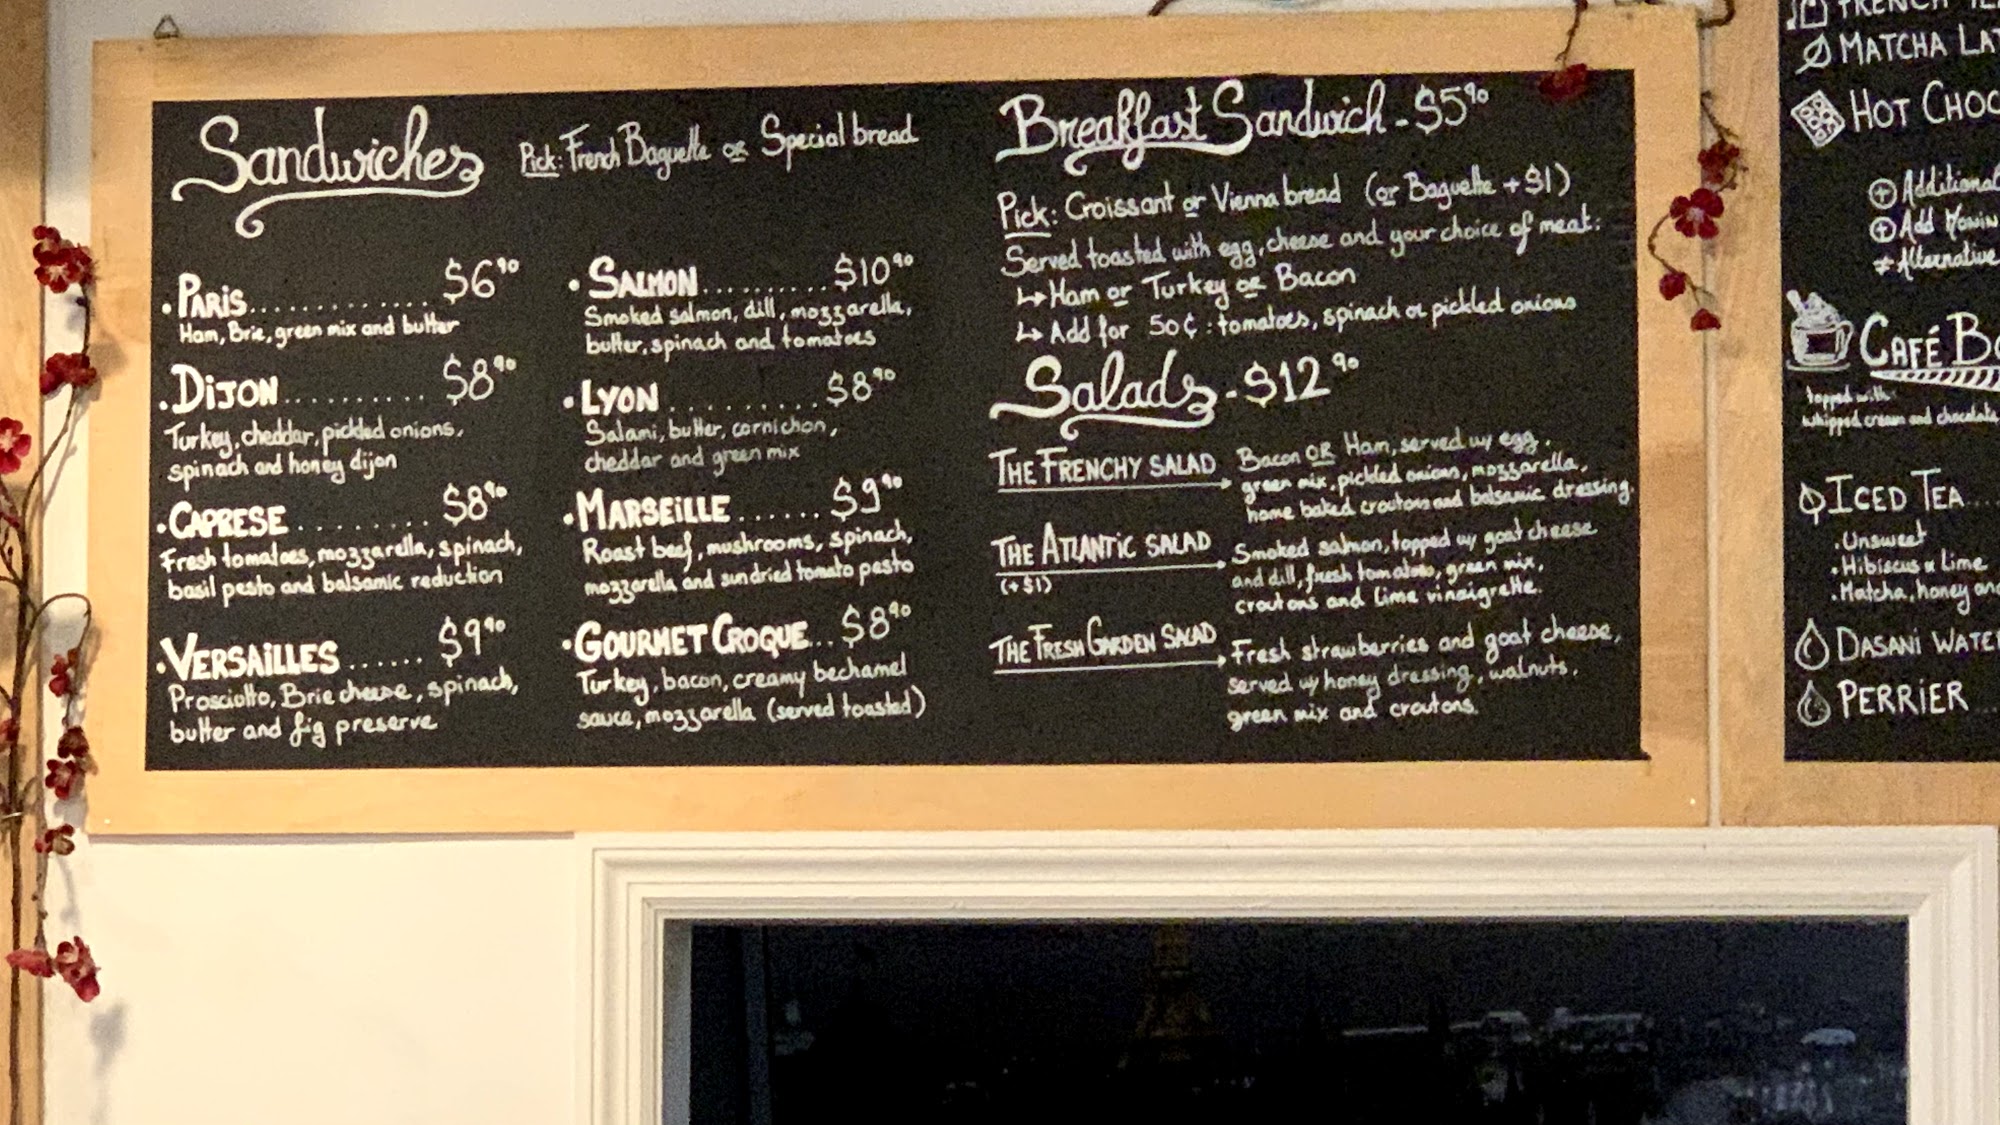 Sandwiches
Pick: French Baguette or Special bread
• PARIS............ $6⁹⁰
Ham, Brie, green mix and butter
• DIJON.......... $8⁹⁰
Turkey, cheddar, pickled onions,
spinach and honey dijon
• CAPRESE......... $8⁹⁰
Fresh tomatoes, mozzarella, spinach,
basil pesto and balsamic reduction
• VERSAILLES...... $9⁹⁰
Prosciutto, Brie cheese, spinach,
butter and fig preserve
• SALMON......... $10⁹⁰
Smoked salmon, dill, mozzarella,
butter, spinach and tomatoes
• LYON.......... $8⁹⁰
Salami, butter, cornichon,
cheddar and green mix
• MARSEILLE...... $9⁹⁰
Roast beef, mushrooms, spinach,
mozzarella and sundried tomato pesto
• GOURMET CROQUE... $8⁹⁰
Turkey, bacon, creamy bechamel
sauce, mozzarella (served toasted)
Breakfast Sandwich - $5⁹⁰
Pick: Croissant or Vienna bread (or Baguette +$1)
Served toasted with egg, cheese and your choice of meat:
↳ Ham or Turkey or Bacon
↳ Add for 50¢: tomatoes, spinach or pickled onions
Salads - $12⁹⁰
THE FRENCHY SALAD
Bacon OR Ham, served w/ egg,
green mix, pickled onions, mozzarella,
home baked croutons and balsamic dressing.
THE ATLANTIC SALAD
(+$1)
Smoked salmon, topped w/ goat cheese
and dill, fresh tomatoes, green mix,
croutons and lime vinaigrette.
THE FRESH GARDEN SALAD
Fresh strawberries and goat cheese,
served w/ honey dressing, walnuts,
green mix and croutons.
FRENCH
MATCHA
HOT
Additional
Add Monin
≠ Alternative
CAFÉ
topped with:
whipped cream and chocolate
ICED TEA...
• Unsweet
• Hibiscus & Lime
• Matcha, honey
DASANI WATER
PERRIER...